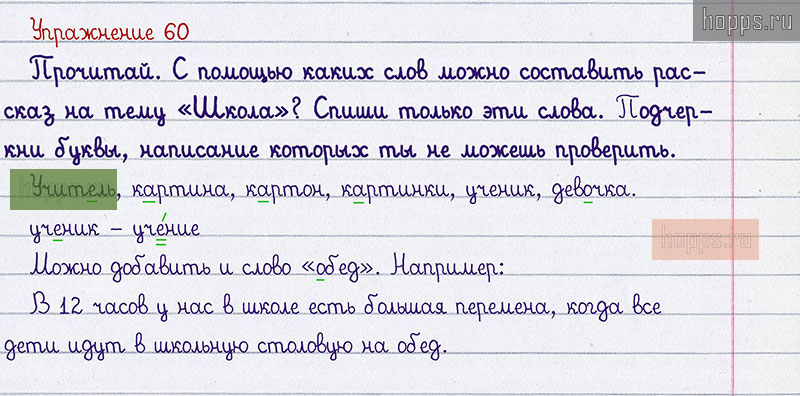 hopps.ru
Упражнение 60
Прочитай. С помощью каких слов можно составить рас-
сказ на тему «Школа»? Спиши только эти слова. Подчер-
кни буквы, написание которых ты не можешь проверить.
Учитель, картина, картон, картинки, ученик, девочка.
ученик – уче́ние
hopps.ru
Можно добавить и слово «обед». Например:
В 12 часов у нас в школе есть большая перемена, когда все
дети идут в школьную столовую на обед.